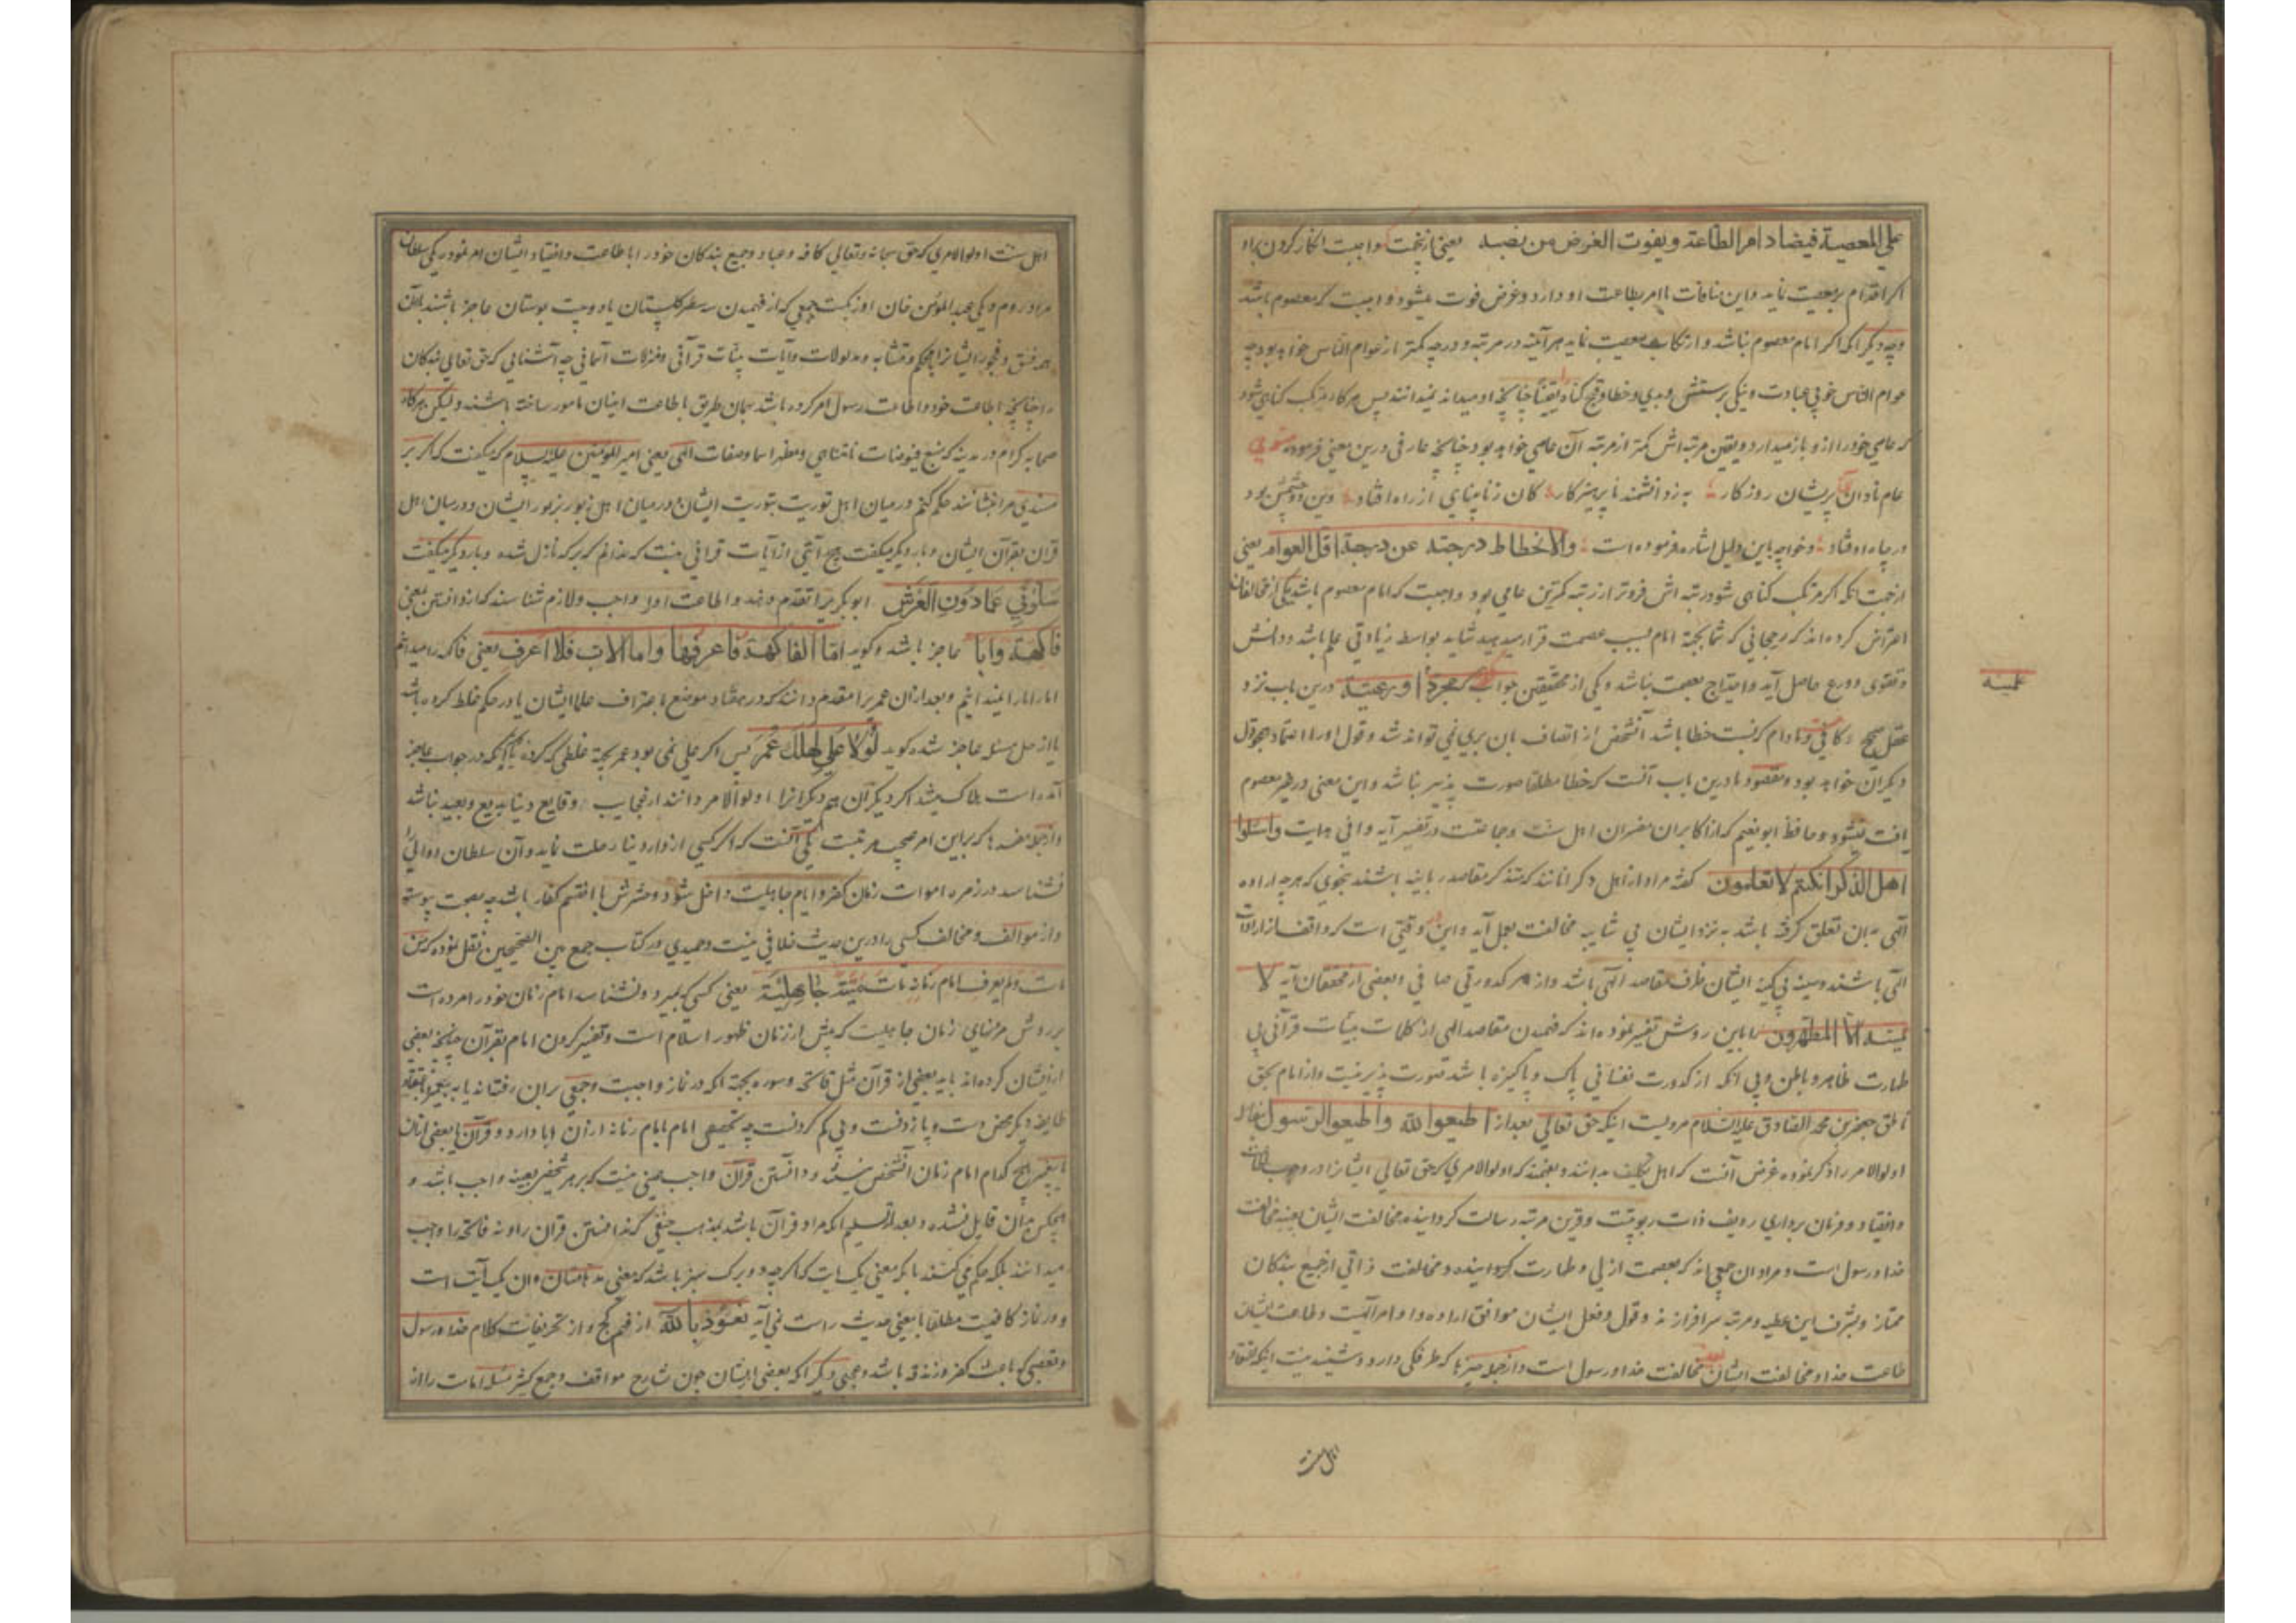 علی المعصیة فیضاد امر الطاعة و یفوت الغرض من نصبه یعنی ازینجهت واجبست انکار کردن براو
اگر اقدام بر معصیت نماید و این منافات با امر بطاعت او دارد و غرض فوت میشود و اجبست که معصوم باشد
وجه دیگر آنکه اگر امام معصوم نباشد و ارتکاب معصیت نماید هر آینه در مرتبه و درجه کمتر از عوام الناس خواهد بود چه
عوام الناس خوبی عبادت و نیکی پرستش و بدی و خطا و قبح گناه را یقینا چنانچه او میداند نمیدانند پس هرگاه مرتکب گناهی شود
که عامی خود را ازو باز میدارد و یقین مرتبه‌اش کمتر از مرتبه آن عامی خواهد بود چنانچه عارفی درین معنی فرموده مثنوی
عام نادان پریشان روزگار به ز دانشمند ناپرهیزکار کان ز نابینایی از راه اوفتاد وین دو چشمش بود
در چاه اوفتاد و خواجه باین دلیل اشاره فرموده است والانحطاط درجته عن درجة اقل العوام یعنی
ازجهت آنکه اگر مرتکب گناهی شود رتبه اش فروتر از رتبه کمترین عامی بود و اجبست که امام معصوم باشد یکی از مخالفان
اعتراض کرده‌اند که رجحانی که شما بجهة امام بسبب عصمت قرار میدهید شاید بواسطه زیادتی علم باشد و دانش
و تقوی و ورع حاصل آید و احتیاج بعصمت نباشد و یکی از محققین جواب گفته که مجرد درین باب نزد
عقل صحیح کافی نیست و مادام که نسبت خطا باشد آنشخص از اتصاف بان بری نمی تواند شد و قول او را اعتماد همچو قول
دیگران خواهد بود و مقصود ما درین باب آنست که خطا مطلقا صورت پذیر نباشد و این معنی در غیر معصوم
یافت نمیشود و حافظ ابو نعیم که از اکابران مفسران اهل سنت و جماعتست در تفسیر آیه وافی هدایت واسئلوا
اهل الذکر ان کنتم لا تعلمون گفته مراد از اهل ذکر آنانند که متذکر مقاصد ربانیه باشند بنحوی که هرچه اراده
الهی بان تعلق گرفته باشد به نزد ایشان بی شایبه مخالفت بعمل آید و این در وقتی است که واقف از ارادات
الهی باشند و سینه بی کینه ایشان ظرف مقاصد الهی باشد و از هر کدورتی صافی و بعضی از محققان آیه لا
یمسه الا المطهرون را باین روش تفسیر نموده اند که فهمیدن مقاصد الهی از کلمات بینات قرآنی بی
طهارت ظاهر و باطن و بی آنکه از کدورت نفسانی پاک و پاکیزه باشد صورت پذیر نیست و از امام بحق
ناطق جعفر بن محمد الصادق علیه السلام مرویست اینکه حق تعالی بعد از اطیعوا الله واطیعوا الرسول
اولوالامر را ذکر نموده غرض آنست که اهل تکلیف بدانند و بفهمند که اولوالامری که حق تعالی ایشان را در وجوب اطاعت
و انقیاد و فرمان برداری ردیف ذات ربوبیت و قرین مرتبه رسالت گردانیده مخالفت ایشان بعینه مخالفت
خدا و رسول است و مراد ان جمعی اند که بعصمت ازلی و طهارت گردانیده و مخالفت ذاتی از جمیع بندگان
ممتاز و بشرف این عطیه و مرتبه سرافرازند و قول و فعل ایشان موافق اراده و اوامر الهیست و طاعت ایشان
طاعت خدا و مخالفت ایشان بعینه مخالفت خدا و رسول است و از جمله چیزها که طرفگی دارد و شنیدنیست اینکه باعتقاد
یمسه
اهل سنت
اهل سنت اولوالامری که حق سبحانه و تعالی کافه و عباد و جمیع بندگان خود را باطاعت و انقیاد ایشان امر نمود یکی سلطان
مراد روم و یکی عبد المؤمن خان اوزبکست جمعی که از فهمیدن سه سطر گلستان یا دو بیت بوستان عاجز باشند با آن
همه فسق و فجور ایشانرا بمحکم و متشابه و مدلولات و آیات بینات قرآنی و منزلات آسمانی چه آشنایی که حق تعالی بندگان
را چنانچه اطاعت خود و اطاعت رسول امر کرده باشد بهمان طریق باطاعت اینان مامور ساخته باشند و لیکن هرگاه
صحابه کرام در مدینه که منبع فیوضات نامتناهی و مظهر اسما و صفات الهی یعنی امیر المؤمنین علیه السلام که میگفت که اگر بر
مسندی مرا بنشانند حکم کنم در میان اهل توریت بتوریت ایشان و در میان اهل زبور بزبور ایشان و در میان اهل
قران بقرآن ایشان و بار دیگر میگفت هیچ آیتی از آیات قرآنی نیست که ندانم که بر که نازل شده و بار دیگر میگفت
سلونی عما دون العرش ابوبکر را تقدم دهند و اطاعت او را واجب و لازم شناسند که از دانستن معنی
فاکهة وابا عاجز باشد و گوید اما الفاکهة فاعرفها واما الاب فلا اعرف یعنی فاکه را میدانم
اما ابا را نمیدانم و بعد از ان عمر را مقدم دانند که در هفتاد موضع باعتراف علما ایشان یا در حکم غلط کرده باشد
یا از حل مسئله عاجز شده گوید لولا علی لهلک عمر پس اگر علی نمی بود عمر بجهة غلطی که کرده یا آنکه در جواب عاجز
آمده است هلاک میشد اگر دیگران هم دیگرانرا اولوالامر دانند از عجایب وقایع دنیا بدیع و بعید نباشد
و از جمله مفسدها که بر این امر صحیح مرتبت یکی آنست که اگر کسی از دار دنیا رحلت نماید و آن سلطان و والی را
نشناسد در زمره اموات زمان کفر و ایام جاهلیت داخل شود و حشرش با اقسم کفار باشد چه بصحت پیوسته
و از موالف و مخالف کسی را درین حدیث خلافی نیست و حمیدی در کتاب جمع بین الصحیحین نقل نموده که من
مات ولم یعرف امام زمانه مات میتة جاهلیة یعنی کسی که بمیرد و نشناسد امام زمان خود را مرده است
بر روش مردنهای زمان جاهلیت که پیش از زمان ظهور اسلام است و تفسیر کردن امام بقرآن چنانچه بعضی
از ایشان کرده اند یا به بعضی از قرآن مثل فاتحه و سوره بجهة آنکه در نماز واجبست و جمعی بران رفته‌اند یا به پیغمبر باعتقاد
طایفه دیگر محض دست و پا زدنست و بی گم کردنست چه تخصیص امام بامام زمانه از آن ابا دارد و قرآن یا بعضی از ان
یا پیغمبر هیچ کدام امام زمان آنشخص نیستند و دانستن قرآن واجب عینی نیست که بر هر شخص بعینه واجب باشد و
هیچکس بدان قایل نشده و بعد از تسلیم آنکه مراد قرآن باشد بمذهب حنفی که نه دانستن قرآن را و نه فاتحه را واجب
میدانند بلکه حکم می کنند باینکه معنی یک آیت که اگرچه دو برگ سبز باشد که معنی مدهامتان و ان یک آیت است
و در نماز کافیست مطلقا باین معنی حدیث راست نمی آید نعوذ بالله از فهم کج و از تحریفات کلام خدا و رسول
و تعصبی که باعث کفر و زندقه باشد و عجبی دیگر آنکه بعضی ایشان چون شارح مواقف و جمع کثیر مسئله امامت را از